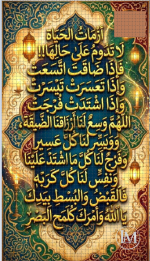 أزمات الحياة
لا تدوم على حالها!!
فإذا ضاقت اتسعت
وإذا تعسرت تيسرت
وإذا اشتدت فرجت
اللهم وسع لنا أرزاقنا الضيقة،
ويسر لنا كل عسير
وفرج لنا كل ما اشتد علينا
ونفس لنا كل كربه
فالقبض والبسط بيدك
يا الله وأمرك كلمح البصر
M